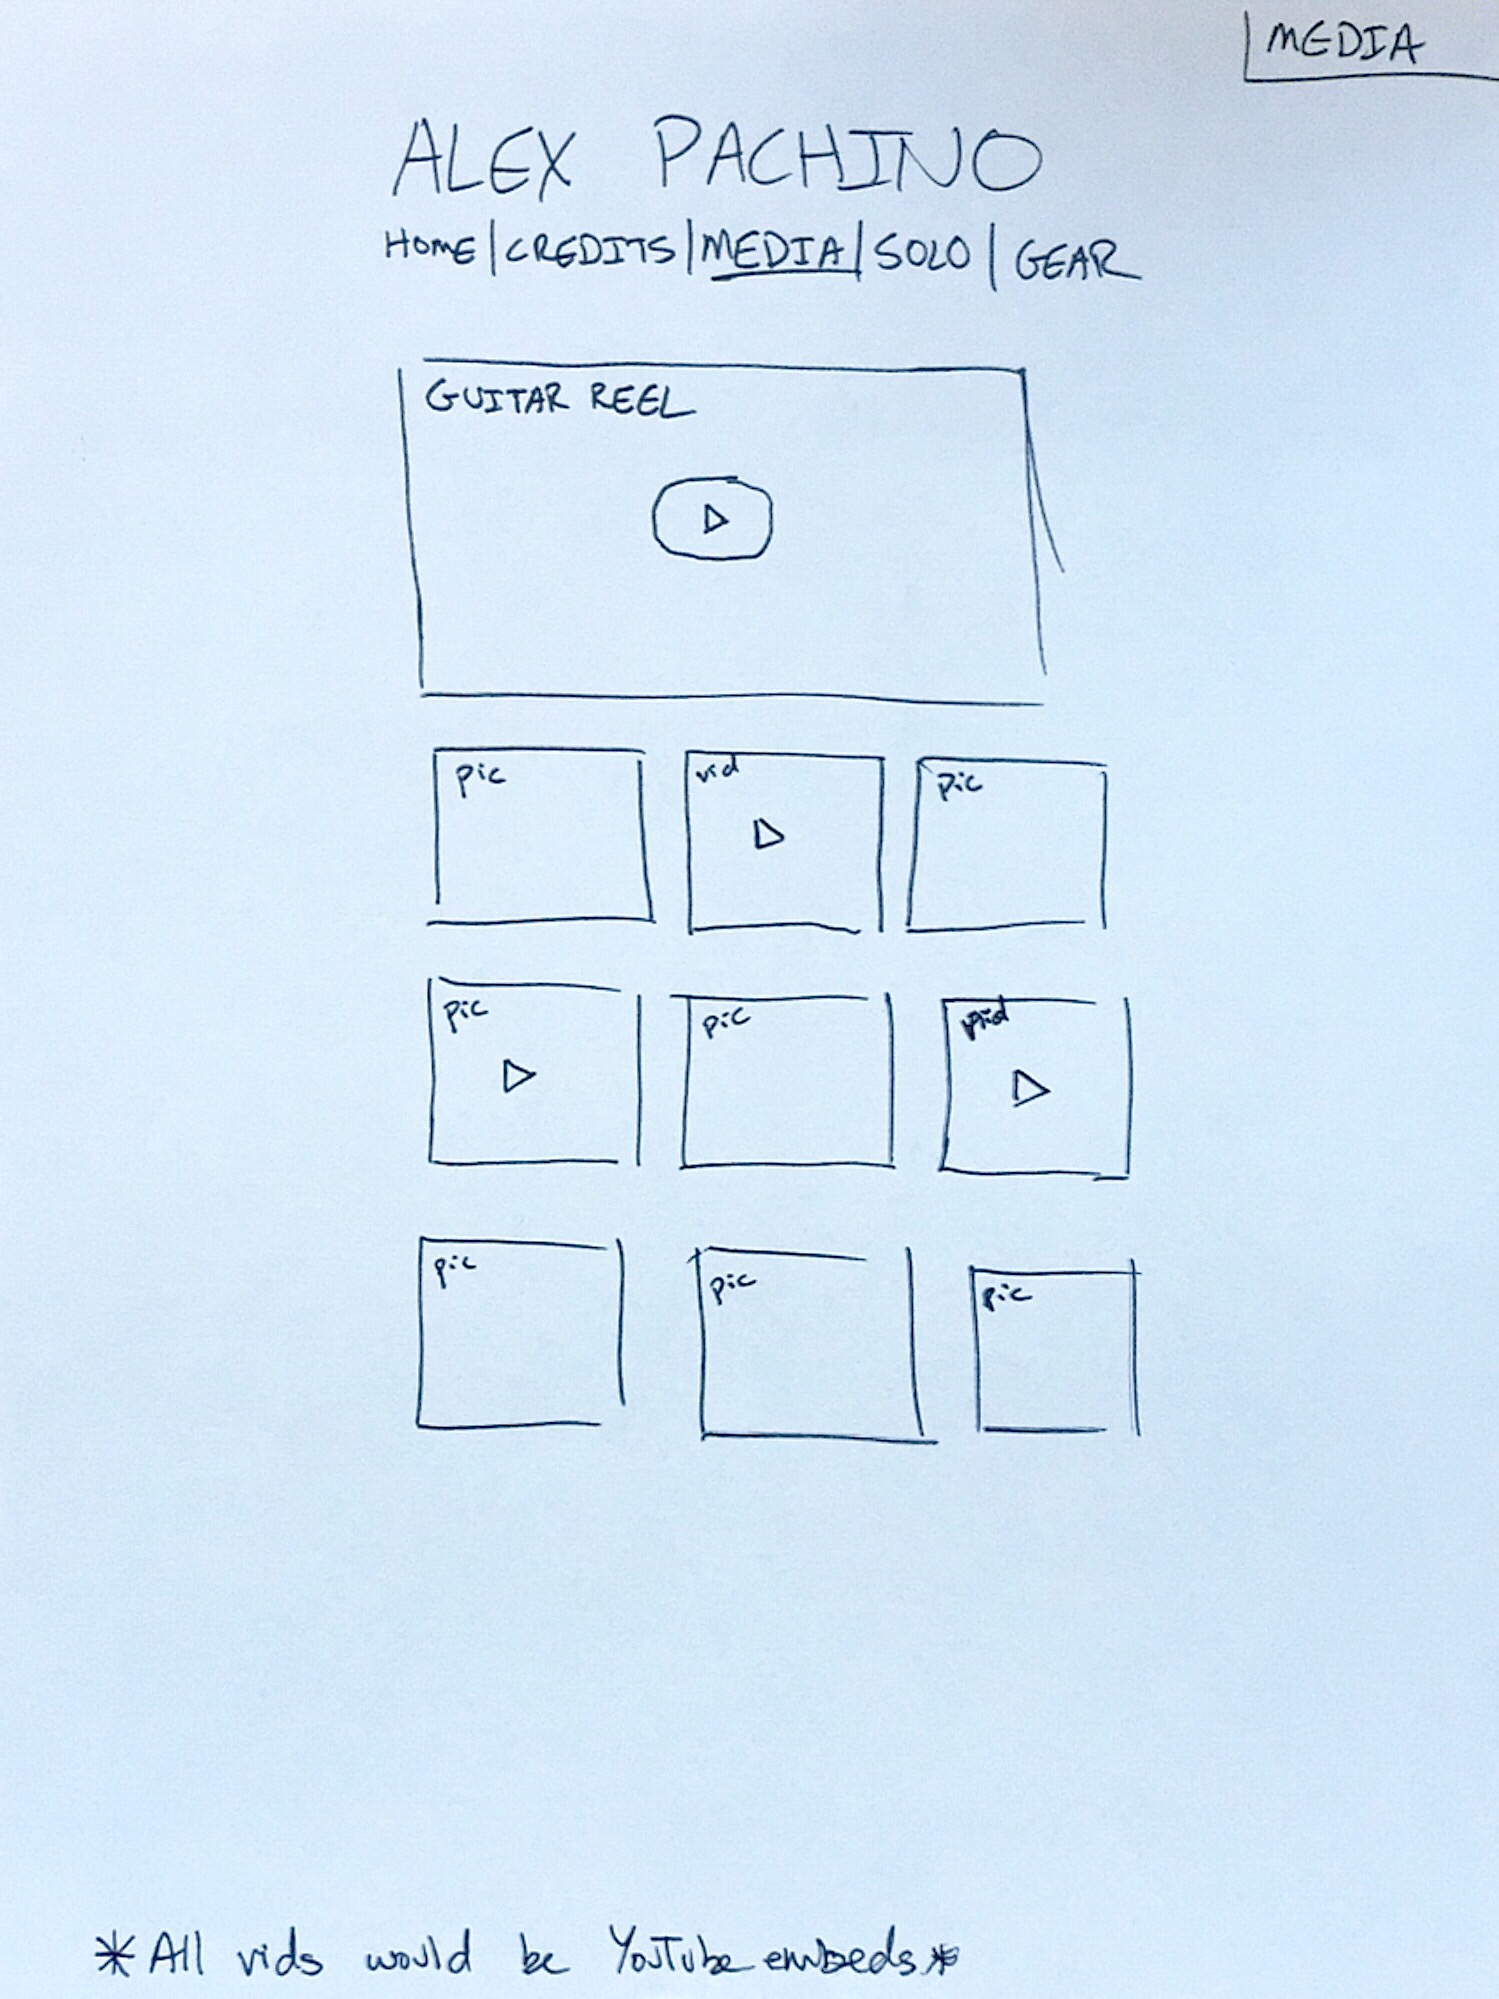 MEDIA
ALEX PACHINO
HOME | CREDITS | MEDIA | SOLO | GEAR
GUITAR REEL
pic vid pic
pic pic vid
pic pic pic
*All vids would be YouTube embeds*